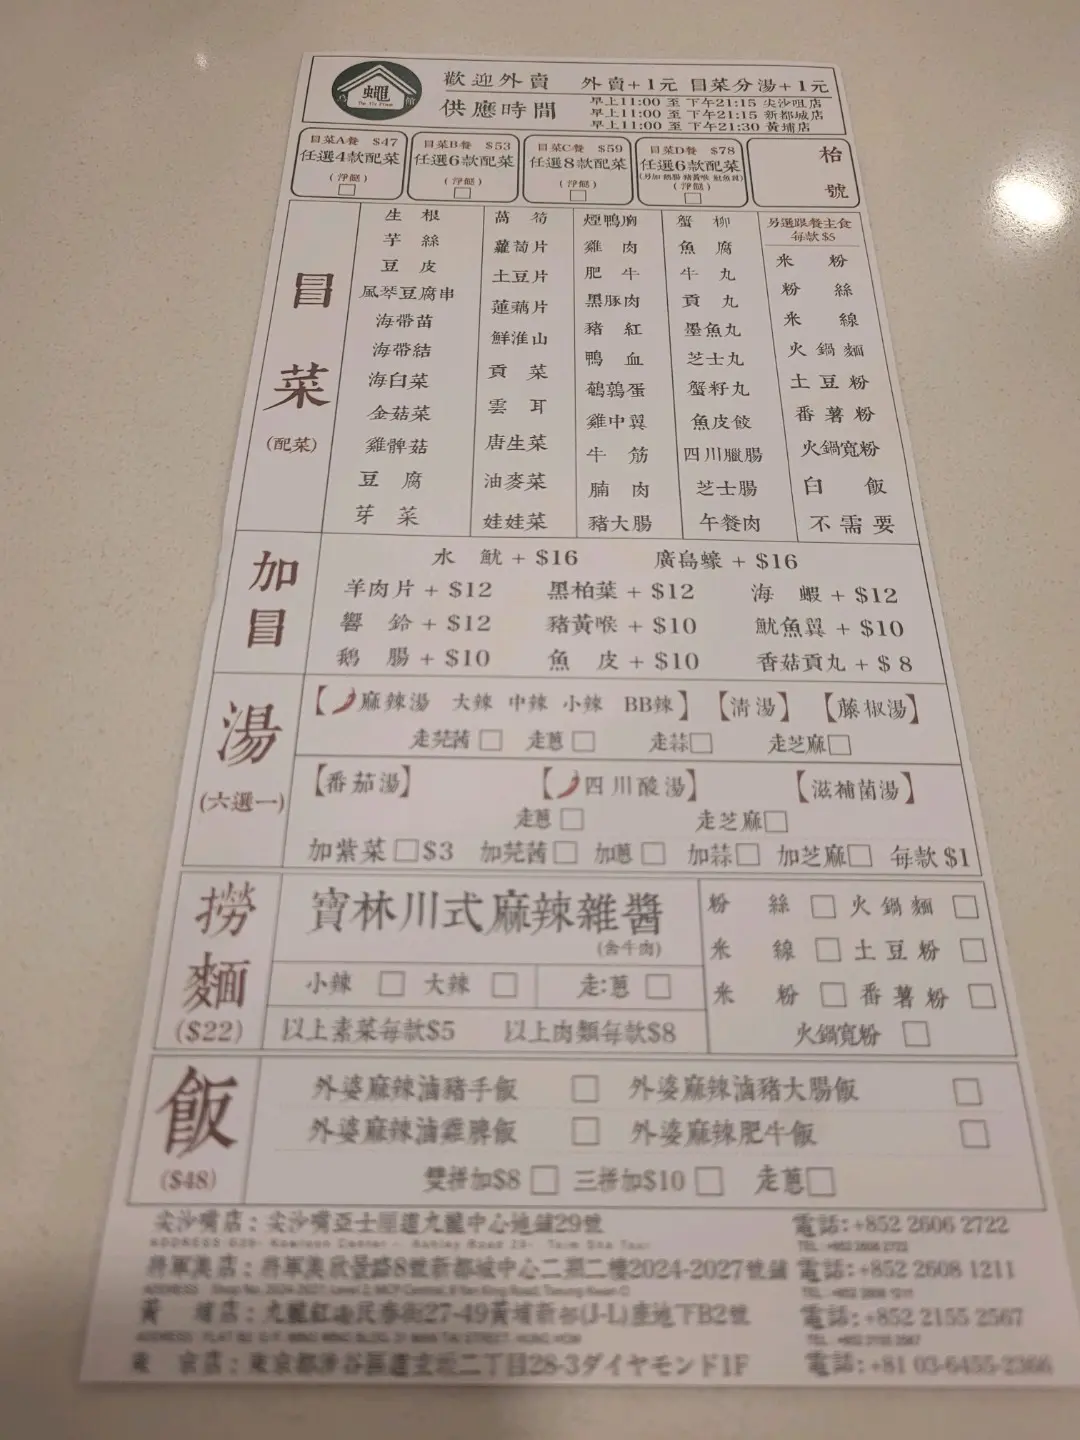 蠅
歡迎外賣 外賣+1元 冒菜分湯+1元
供應時間
早上11:00 至 下午21:15 尖沙咀店
早上11:00 至 下午21:15 新都城店
早上11:00 至 下午21:30 黃埔店
冒菜A餐 $47
任選4款配菜
(淨餸)
冒菜B餐 $53
任選6款配菜
(淨餸)
冒菜C餐 $59
任選8款配菜
(淨餸)
冒菜D餐 $78
任選6款配菜
(另加 鵝腸 豬黃喉 魷魚翼)
(淨餸)
枱號
冒菜
(配菜)
生根
芋絲
豆皮
風琴豆腐串
海帶苗
海帶結
海白菜
金菇菜
雞髀菇
豆腐
芽菜
萵筍
蘿蔔片
土豆片
蓮藕片
鮮淮山
貢菜
雲耳
唐生菜
油麥菜
娃娃菜
煙鴨胸
雞肉
肥牛
黑豚肉
豬紅
鴨血
鵪鶉蛋
雞中翼
牛筋
腩肉
豬大腸
蟹柳
魚腐
牛丸
貢丸
墨魚丸
芝士丸
蟹籽丸
魚皮餃
四川臘腸
芝士腸
午餐肉
另選跟餐主食
每款$5
米粉
粉絲
米線
火鍋麵
土豆粉
番薯粉
火鍋寬粉
白飯
不需要
加冒
水魷 + $16 廣島蠔 + $16
羊肉片 + $12 黑柏葉 + $12 海蝦 + $12
響鈴 + $12 豬黃喉 + $10 魷魚翼 + $10
鵝腸 + $10 魚皮 + $10 香菇貢丸 + $ 8
湯
(六選一)
【麻辣湯 大辣 中辣 小辣 BB辣】 【清湯】 【藤椒湯】
走芫茜 □ 走蔥 □ 走蒜□ 走芝麻□
【番茄湯】 【四川酸湯】 【滋補菌湯】
走蔥 □ 走芝麻□
加紫菜 □$3 加芫茜□ 加蔥 □ 加蒜□ 加芝麻□ 每款 $1
撈麵
($22)
寶林川式麻辣雜醬
(含牛肉)
小辣 □ 大辣 □ 走:蔥 □
以上素菜每款$5 以上肉類每款$8
粉絲 □ 火鍋麵 □
米線 □ 土豆粉 □
米粉 □ 番薯粉 □
火鍋寬粉 □
飯
($48)
外婆麻辣滷豬手飯 □ 外婆麻辣滷豬大腸飯 □
外婆麻辣滷雞髀飯 □ 外婆麻辣肥牛飯 □
雙拼加$8 □ 三拼加$10 □ 走蔥□
尖沙嘴店：尖沙嘴亞士厘道九龍中心地舖29號 電話:+852 2606 2722
將軍澳店：將軍澳欣景路8號新都城中心二期二樓2024-2027號舖 電話:+852 2608 1211
黃埔店：九龍紅磡民泰街27-49黃埔新邨(J-L)座地下B2號 電話:+852 2155 2567
東京店：東京都渋谷區道玄坂二丁目28-3ダイヤモンド1F 電話:+81 03-6455-2366